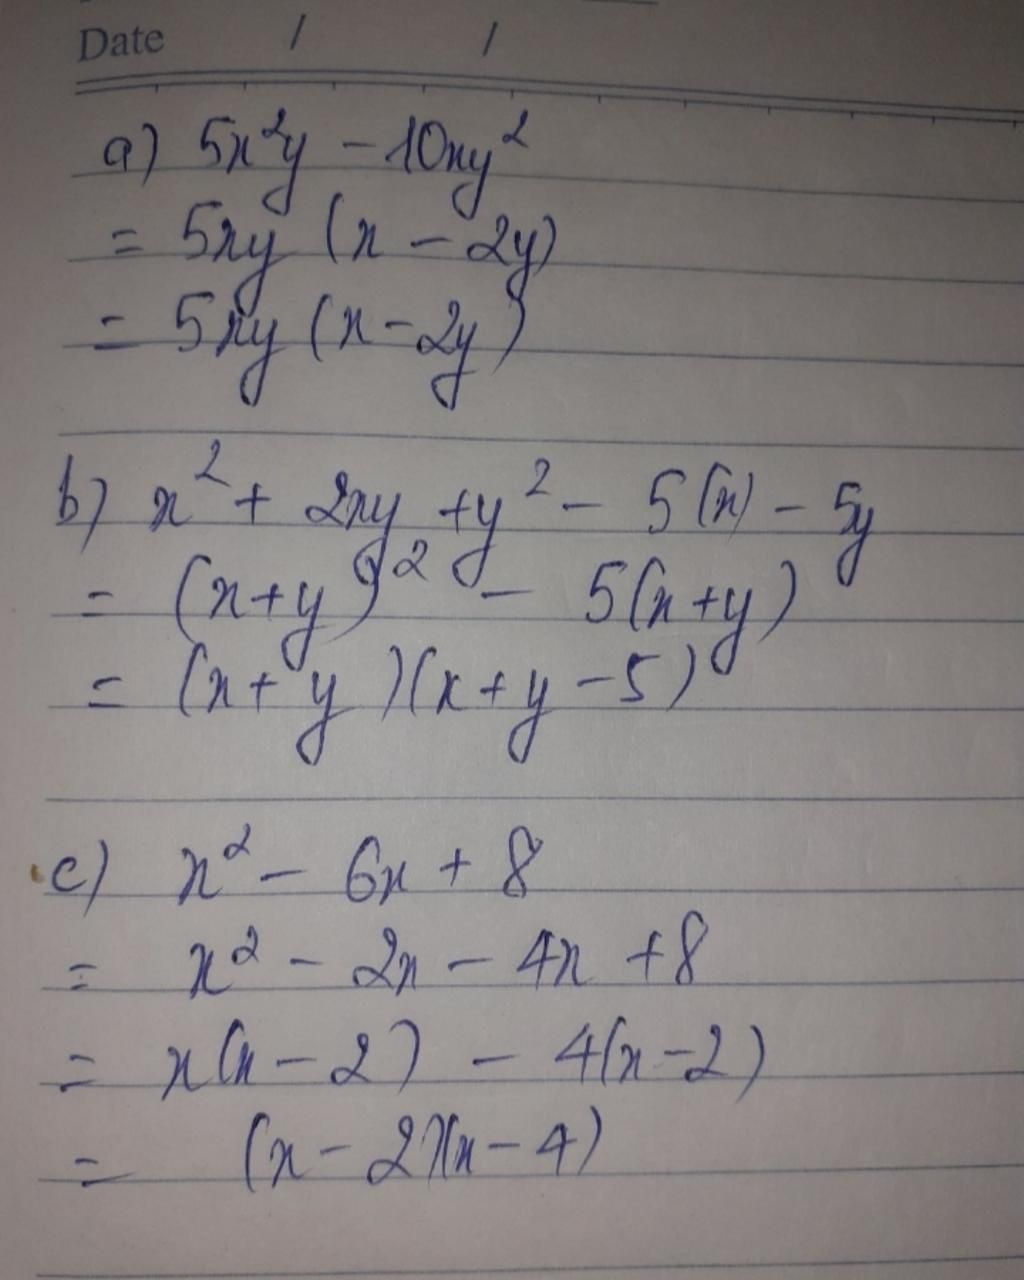 Date / /
a) 5x²y - 10xy²
= 5xy (x - 2y)
= 5xy (x - 2y)
b) x² + 2xy + y² - 5(x) - 5y
= (x+y)² - 5(x+y)
= (x+y)(x+y-5)
c) x² - 6x + 8
= x² - 2x - 4x + 8
= x(x-2) - 4(x-2)
= (x-2)(x-4)